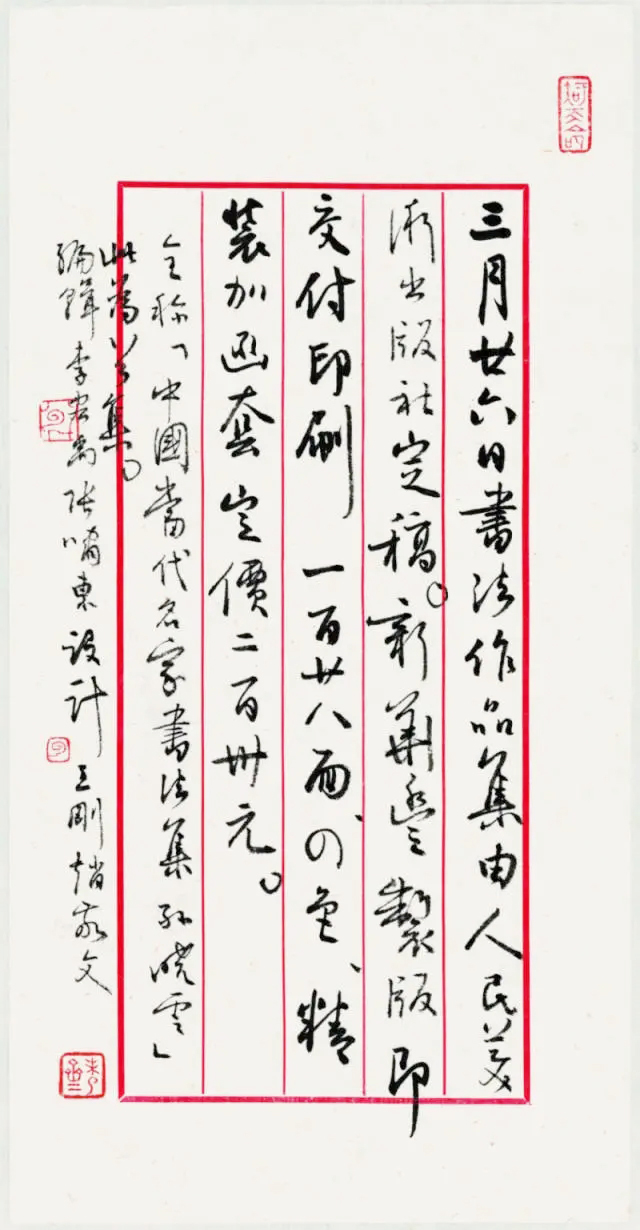 三月廿六日書法作品集由人民美
術出版社定稿。新華製版即
交付印刷 一百廿八面、四色、精
裝加函套定價二百元。
全称「中國當代名家書法集 孫曉雲」
此為集。
編輯 李宏禹 張嘯東 設計 王剛 文